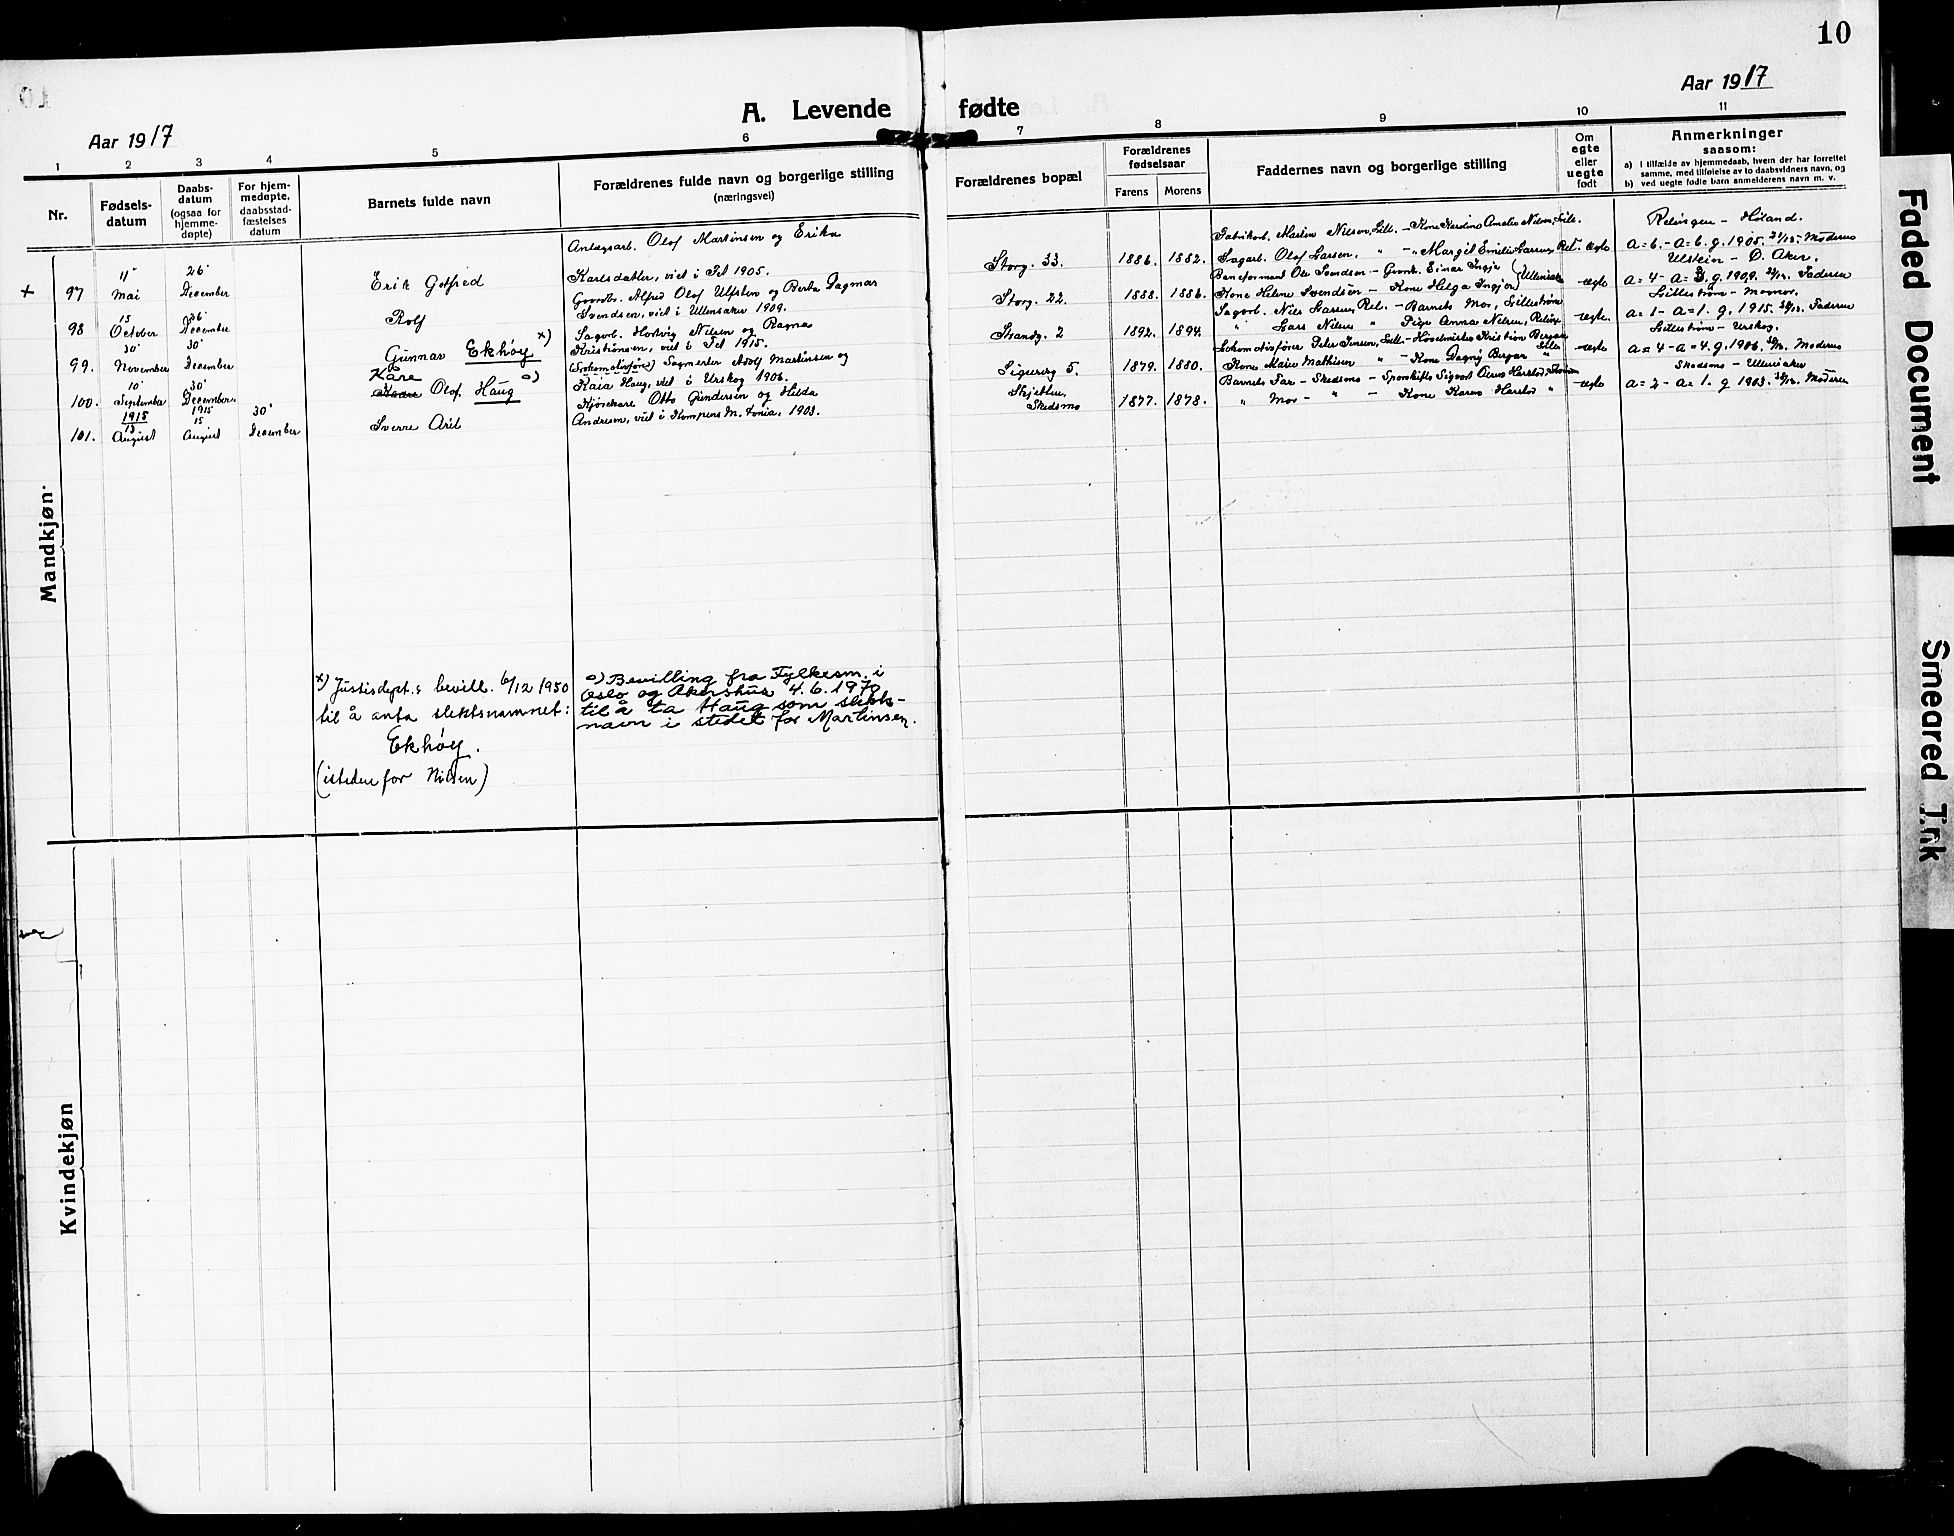 10
Aar 1917
Aar 1917
A. Levende fødte
1 2 3 4 5 6 7 8 9 10 11
Nr.
Fødsels-
datum
Daabs-
datum
(ogsaa for
hjemme-
døpte)
For hjem-
medøpte,
daabsstad-
fæstelses
datum
Barnets fulde navn
Forældrenes fulde navn og borgerlige stilling
(næringsvei)
Forældrenes bopæl
Forældrenes
fødselsaar
Farens
Morens
Faddernes navn og borgerlige stilling
Om
egte
eller
uegte
født
Anmerkninger
saasom:
a) i tilfælde av hjemmedaab, hvem der har forrettet
samme, med tilføielse av to daabsvidners navn, og
b) ved uegte fødte barn anmelderens navn m. v.
Mandkjøn.
+ 97 11' Mai 26' December Erik Gotfred
Anlægsarb. Olof Martinsen og Erika
Karlsdatter, viet i Fet 1905.
Storg. 33. 1886. 1882.
Fabrikarb. Martin Nilsen, Lill. – Kone Amalie Nilsen, Lill.
Sagarb. Olof Larsen, " – " Margit Emilie Larsen, Rel. – egte
Relingen – Høland.
a = 6. – a = 6. g. 1905. Moderen
98 13' October 26' December Rolf
Gaardbr. Alfred Olof Ulfsten og Berta Dagmar
Svendsen, viet i Ullensaker 1909.
Storg. 22. 1888. 1886.
Baneformand Ole Svendsen – Gaardb. Einar Ingje
Kone Helene Svendsen – Kone Helga Ingjer – egte
Ulstein – Ø. Aker.
a = 4 – a = 3. g. 1909. Faderen
99. 30' November 30' December Gunnar Ekhøy x)
Sagarb. Hartvig Nilsen og Ragna
Kristiansen, viet i Fet 1915.
Strandg. 2 1892. 1894.
Sagarb. Nils Larsen, Rel. – Barnets Mor, Lillestrøm
" Lars Nilsen " Pige Anna Nilsen, Reling. – egte.
Lillestrøm –
a = 1 – a = 1. g. 1915. Faderen
100. 10' September 30' December Kåre Olof Haug o)
(Lokomotivfører) Sagmester Adolf Martinsen og
Kaia Haug, viet i Urskog 1906.
Sigurdsg 5. 1879. 1880.
Lokomotivfører Peter Jensen, Lill. – Kristian Berger
Kone Marie Mathisen " – Kone Dagny Berger " – egte
Lillestrøm – Urskog.
a = 4 – a = 4. g. 1906. Moderen
101. 1915 13' August 1915 15 August 30' December Sverre Aril
Kjørekare Otto Gundersen og Hilda
Andresen, viet i Kampens M. 1903.
Skjetten,
Skedsmo
1877. 1878.
Barnets Far – Skedsmo – Sigvart
" Mor – " – Kone Karen " – egte
Skedsmo – Ullensaker
a = 2 – a = 1. g 1903. Moderen
x) Justisdept.s bevill. 6/12 1950
til å anta slektsnamnet:
Ekhøy.
(isteden for Nilsen)
o) Bevilling fra Fylkesm. i
Oslo og Akershus 4.6.1970
til å ta Haug som slekts-
navn i stedet for Martinsen.
Kvindekjøn
Faded Document
Smeared Ink